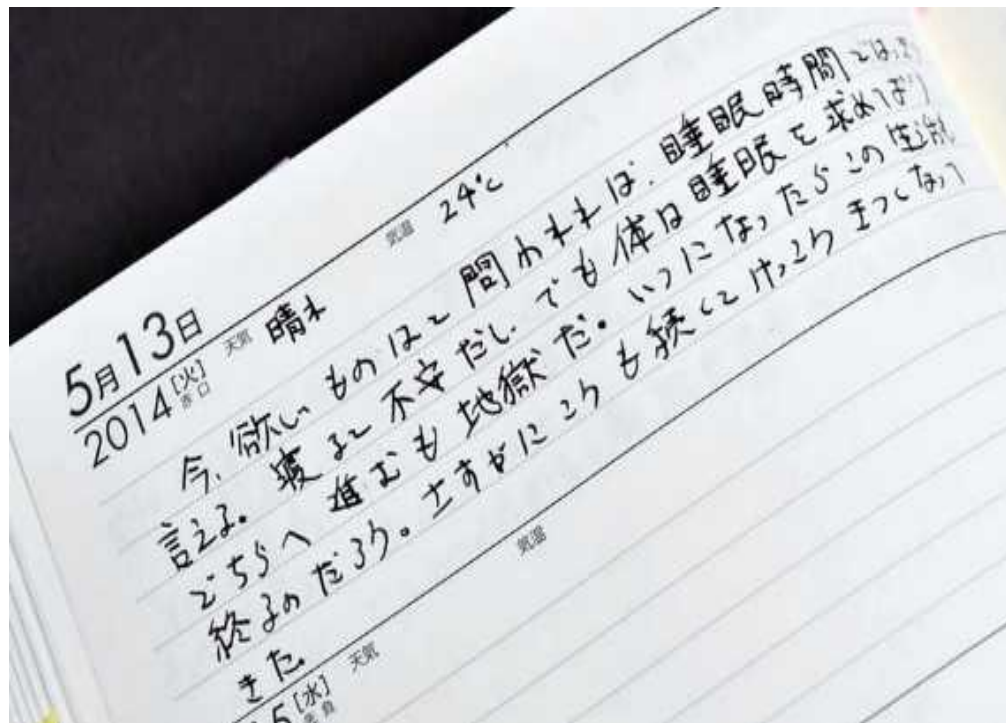 5月13日 天気 晴れ 気温 24℃
2014 [火] 赤口
今、欲しいものはと問われれば、睡眠時間ではっきり
言える。寝ると不安だし、でも体は睡眠を求めてばり
どちらへ進むも地獄だ。いつになったらこの生活が
終るのだろう。さすがにこうも続くとけっこうきつくなって
きた。
天気 気温
5 [水]